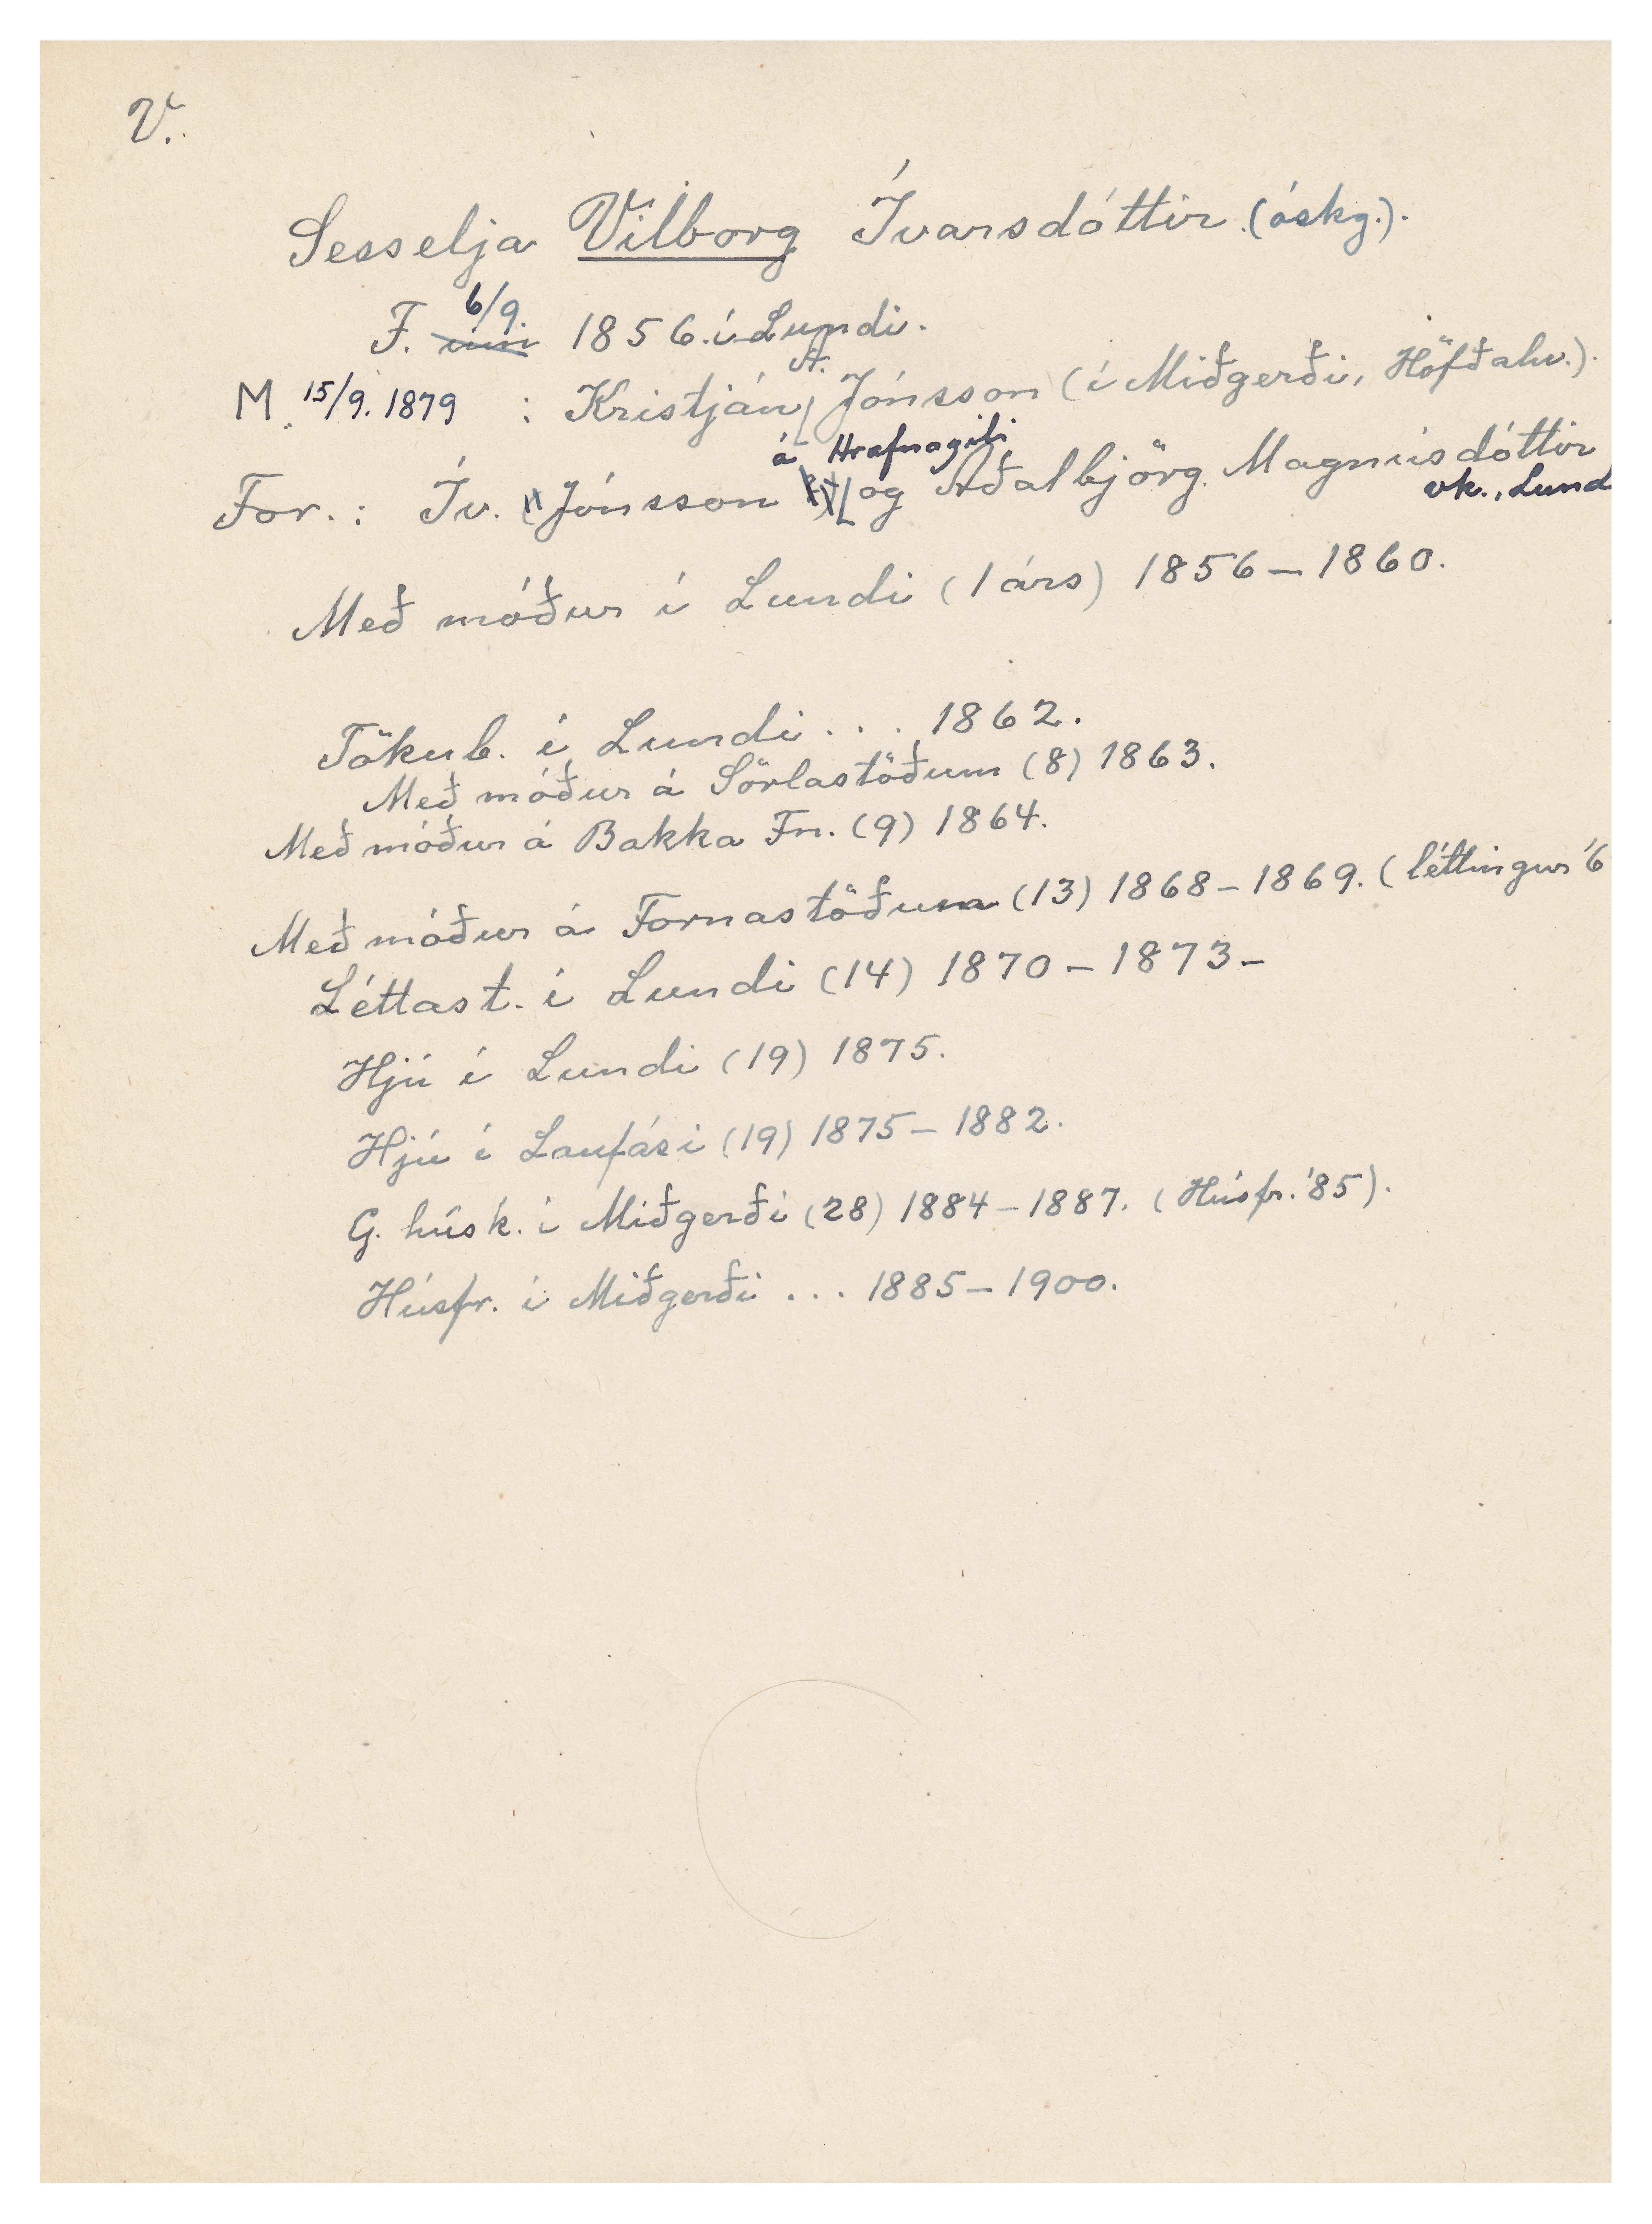 V.
Sesselja Vilborg Ívarsdóttir. (óskg.).
6/9.
F. 1856. í Lundi.
A.
M. 15/9. 1879 : Kristján Jónsson (í Miðgerði, Höfðahv.).
á Hrafnagili
For.: Ív. Jónsson og Aðalbjörg Magnúsdóttir
vk., Lund
Með móður í Lundi (1 árs) 1856 – 1860.
Tökub. í Lundi . . . 1862.
Með móður á Sörlastöðum (8) 1863.
Með móður á Bakka Fn. (9) 1864.
Með móður á Fornastöðum (13) 1868 – 1869. (léttingur '6
Léttast. í Lundi (14) 1870 – 1873 –
Hjú í Lundi (19) 1875.
Hjú í Laufási (19) 1875 – 1882.
G. húsk. í Miðgerði (28) 1884 – 1887. (Húsfr. '85).
Húsfr. í Miðgerði . . . 1885 – 1900.